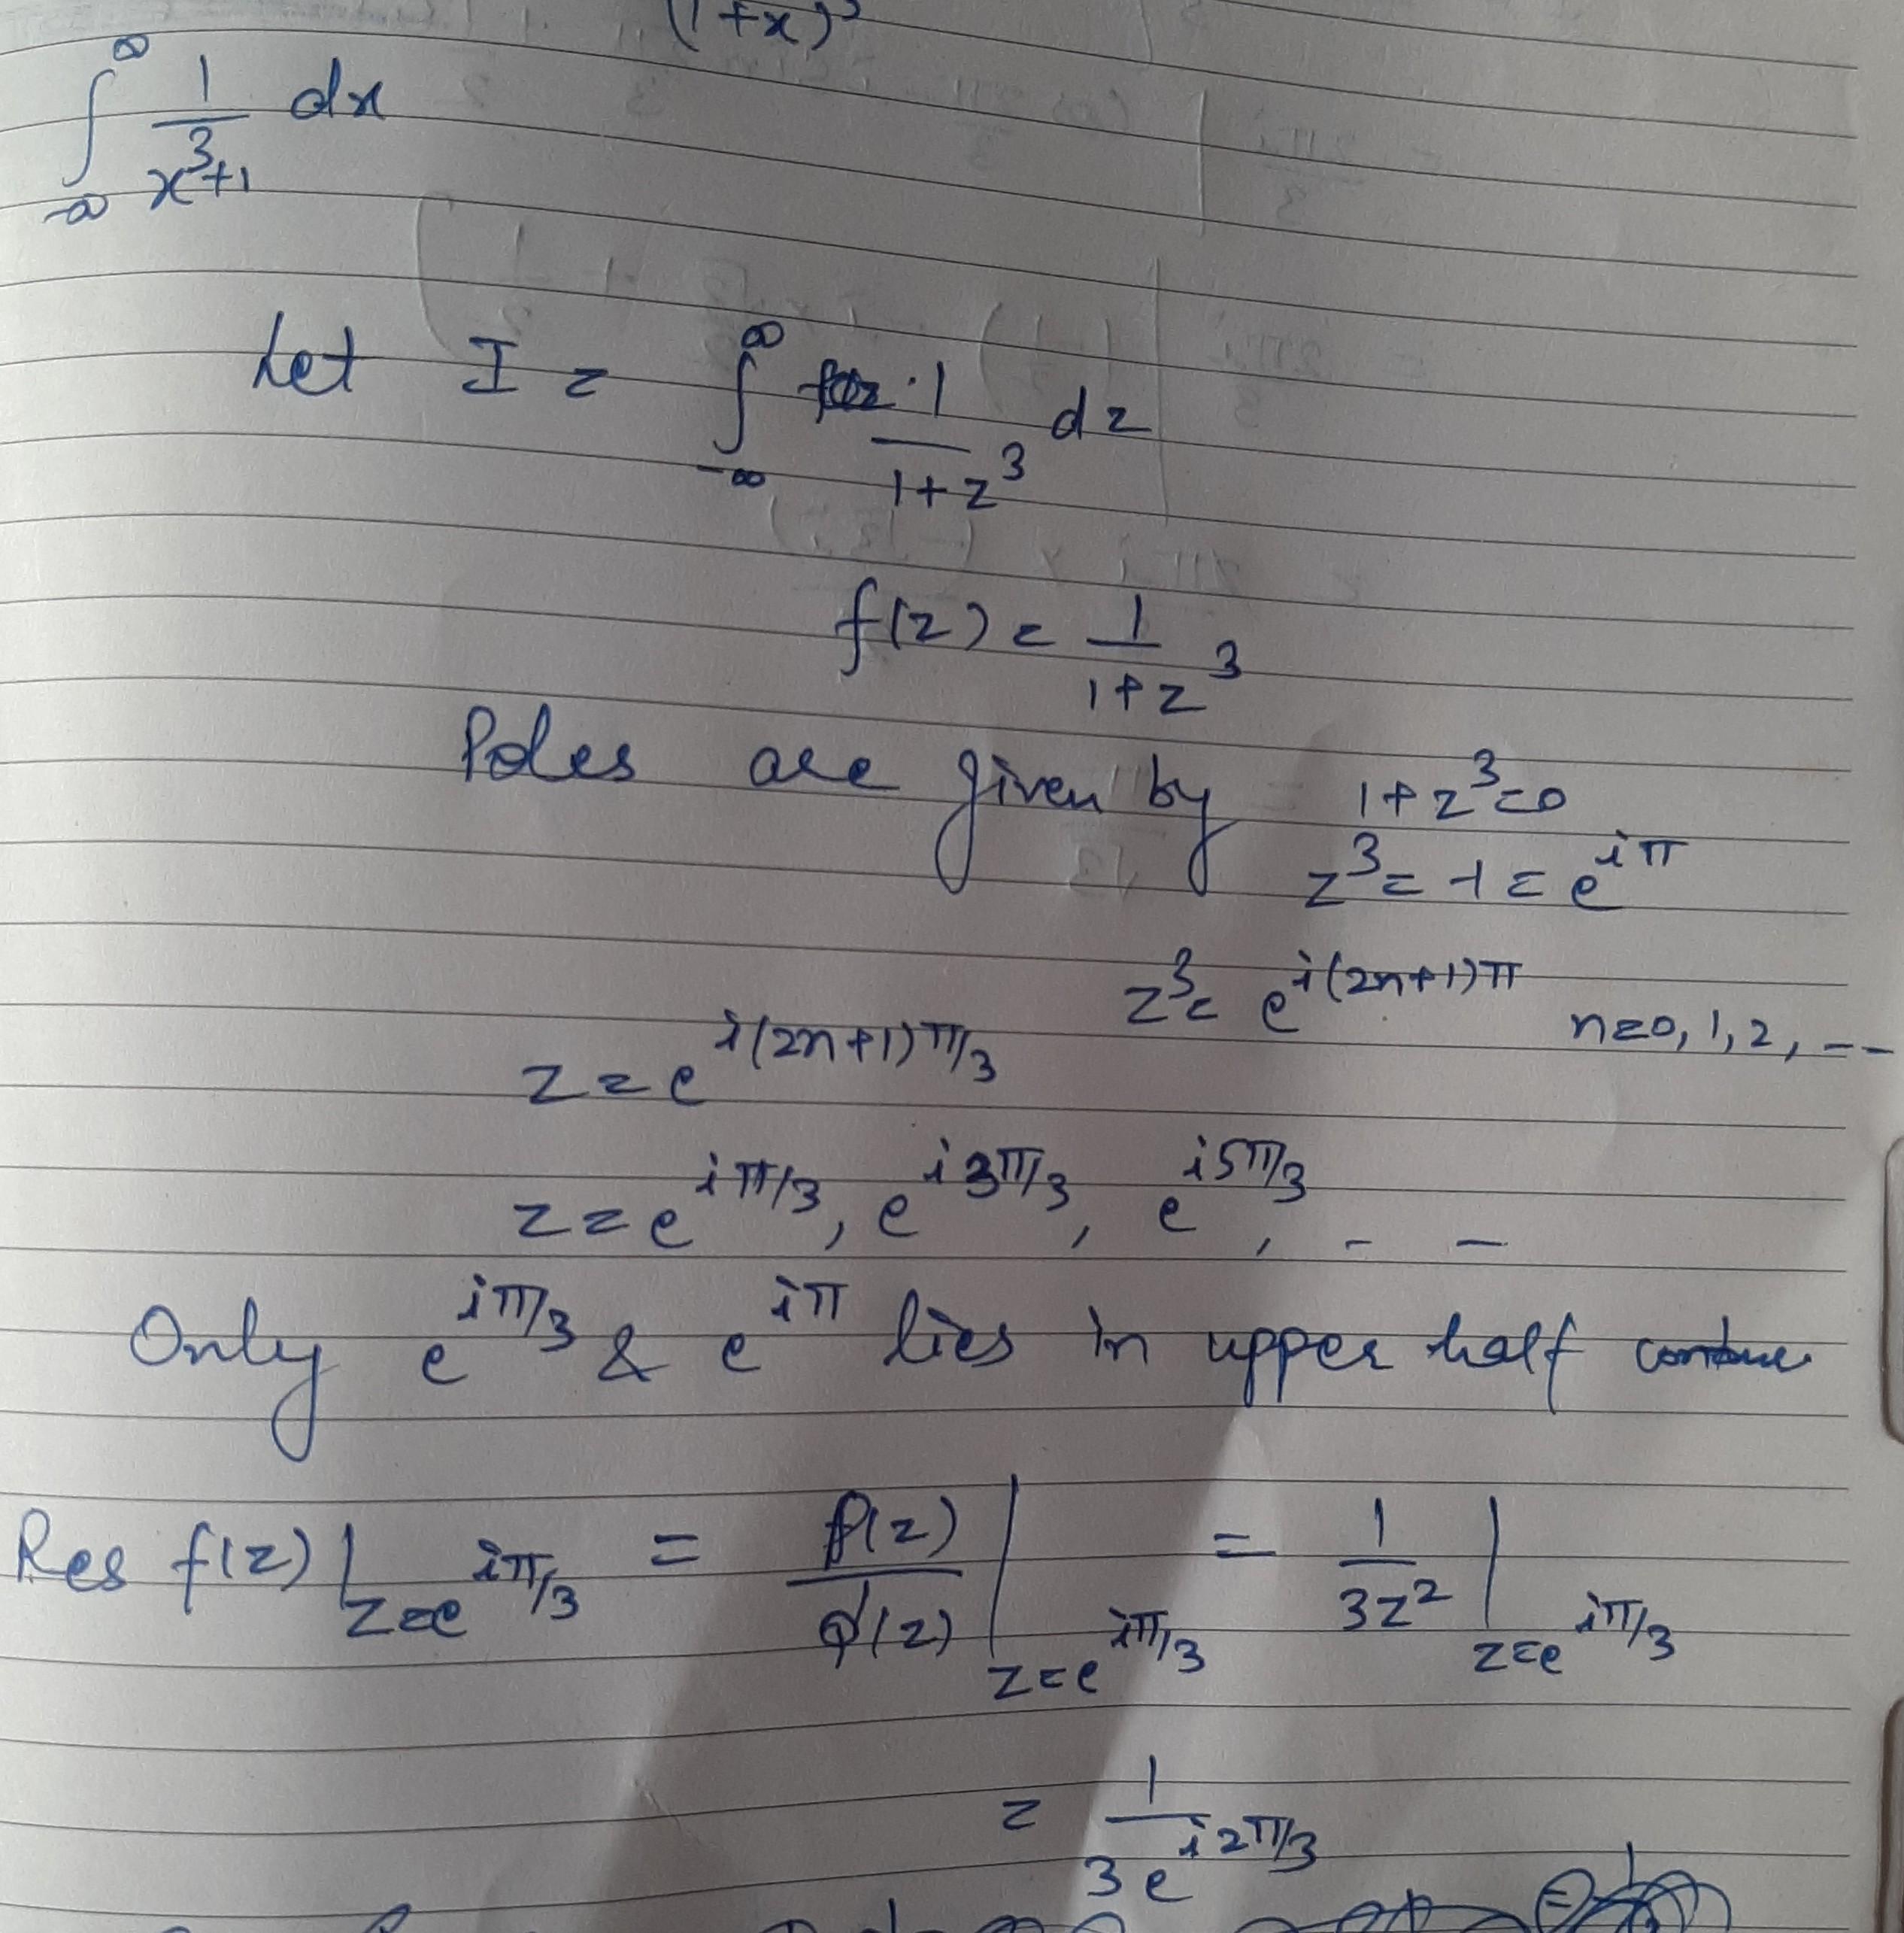 (1+x)³
∫_{-∞}^{∞} 1/(x³+1) dx
Let I = ∫_{-∞}^{∞} 1/(1+z³) dz
f(z) = 1/(1+z³)
Poles are given by 1+z³=0
z³ = -1 = e^{iπ}
z³ = e^{i(2n+1)π} n=0, 1, 2, --
z = e^{i(2n+1)π/3}
z = e^{iπ/3}, e^{i3π/3}, e^{i5π/3}, - -
Only e^{iπ/3} & e^{iπ} lies in upper half
Res f(z)|_{z=e^{iπ/3}} = P(z)/Q'(z)|_{z=e^{iπ/3}} = 1/(3z²)|_{z=e^{iπ/3}}
= 1/(3e^{i2π/3})